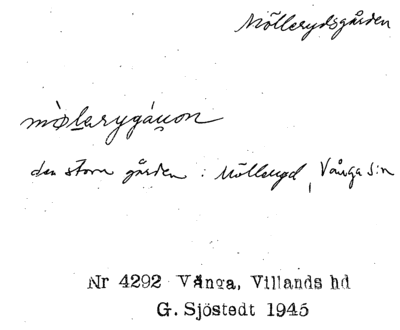 Möllerydsgården
mø̀larygáu̯on
den stora gården i Mölleryd, Vånga s:n
Nr 4292 Vånga, Villands hd
G. Sjöstedt 1945